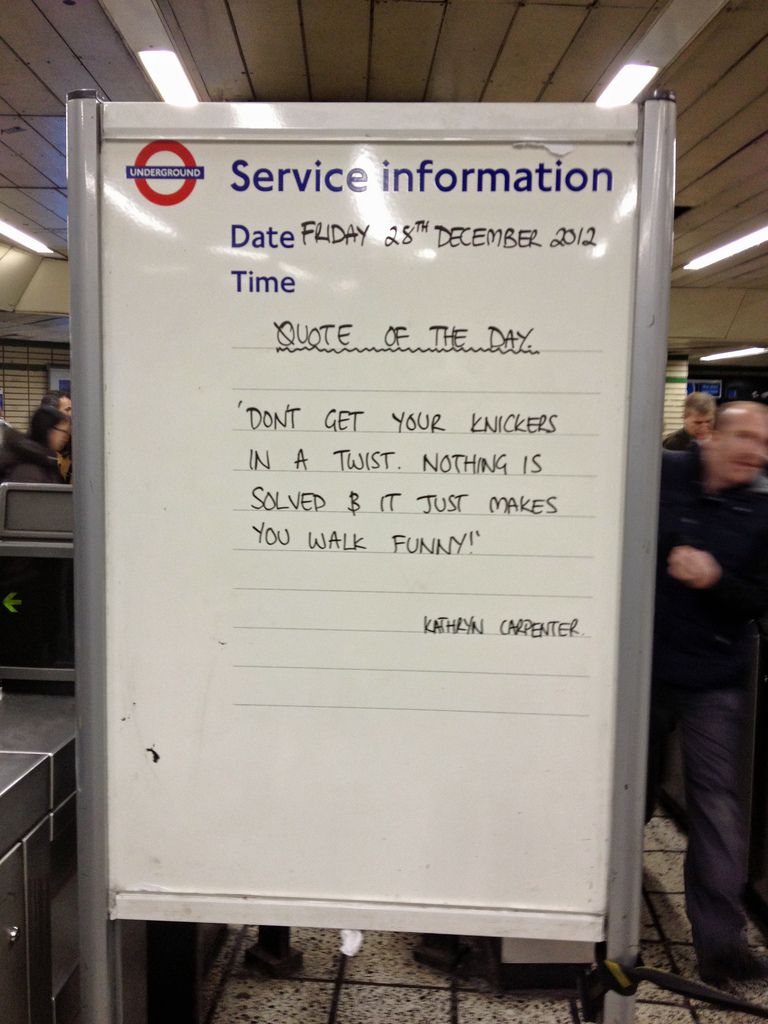 UNDERGROUND
Service information
Date FRIDAY 28TH DECEMBER 2012
Time
QUOTE OF THE DAY.
'DONT GET YOUR KNICKERS
IN A TWIST. NOTHING IS
SOLVED & IT JUST MAKES
YOU WALK FUNNY!'
KATHRYN CARPENTER.